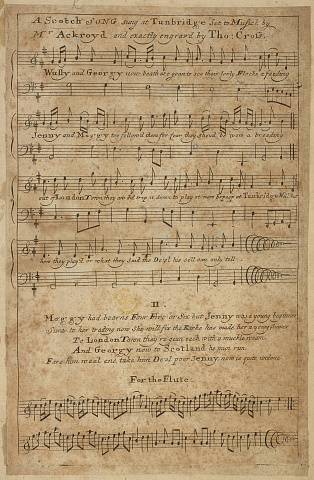 A Scotch SONG Sung at Tunbridge Set to Musick by
Mr. Ackroyd and exactly engrav'd by Tho: Cross.
Wully and Georgy now beath are gean to see their Flocks a feeding
Jenny and Moggy too follow'd them for fear they should be won a breeding
out of London Town they are trip it down to play at Tunbridge
how they play'd or what they said the De'il his sell can only tell
II.
Moggy had bearns Four Five or Six but Jenny was a young beginner
since to her trading now she will fix the has made her a young sinner
To London Town they're gean each with a muckle weam
And Georgy now to Scotland is gean
Fare him weal ene, take him De'il poor Jenny now is quite undone
For the Flute.